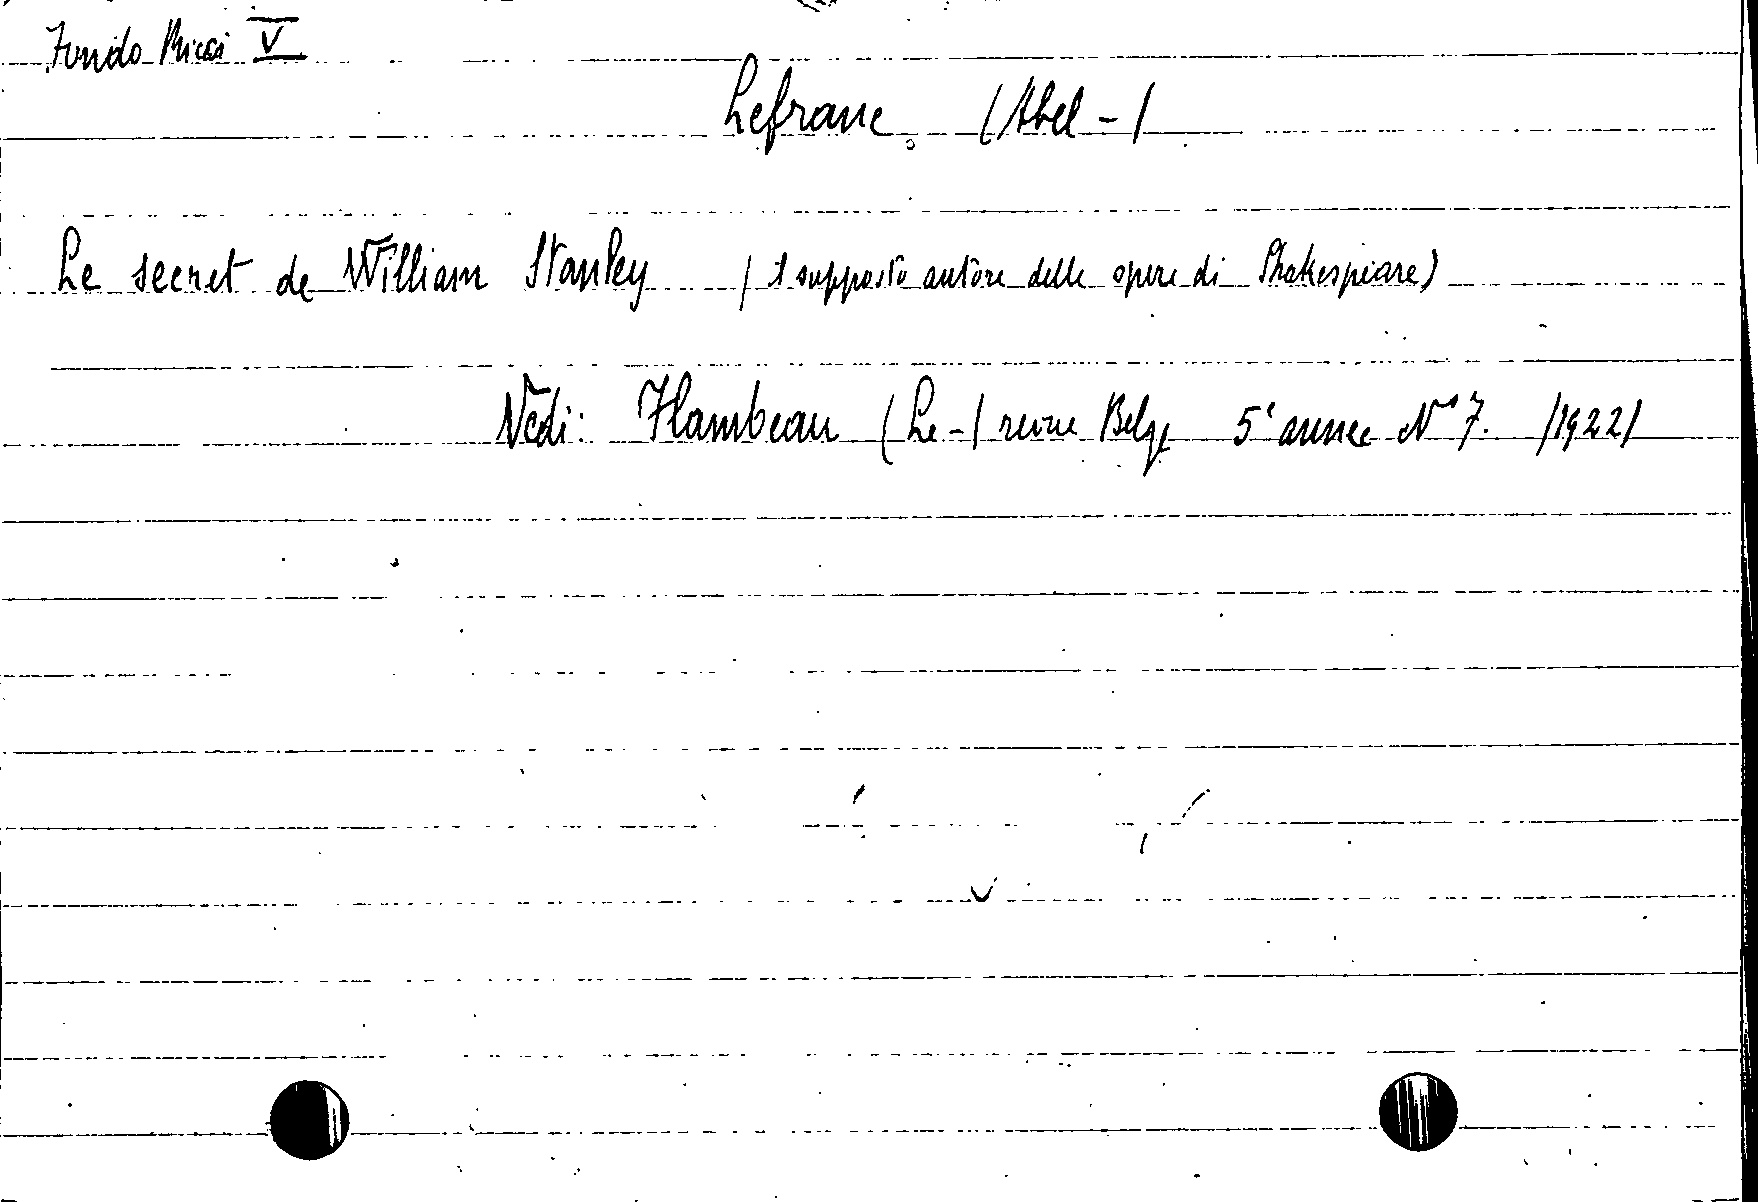 Fondo Ricci V
Lefranc, (Abel-)
Le secret de William Stanley (il supposto autore delle opere di Shakespeare)
Vedi: Flambeau (Le-) revue Belge 5e année No 7. (1922)